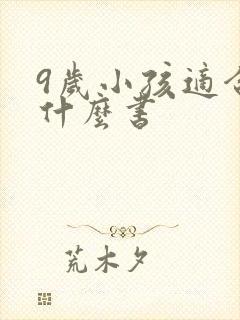 9歲小孩適合
什麼書
荒木夕